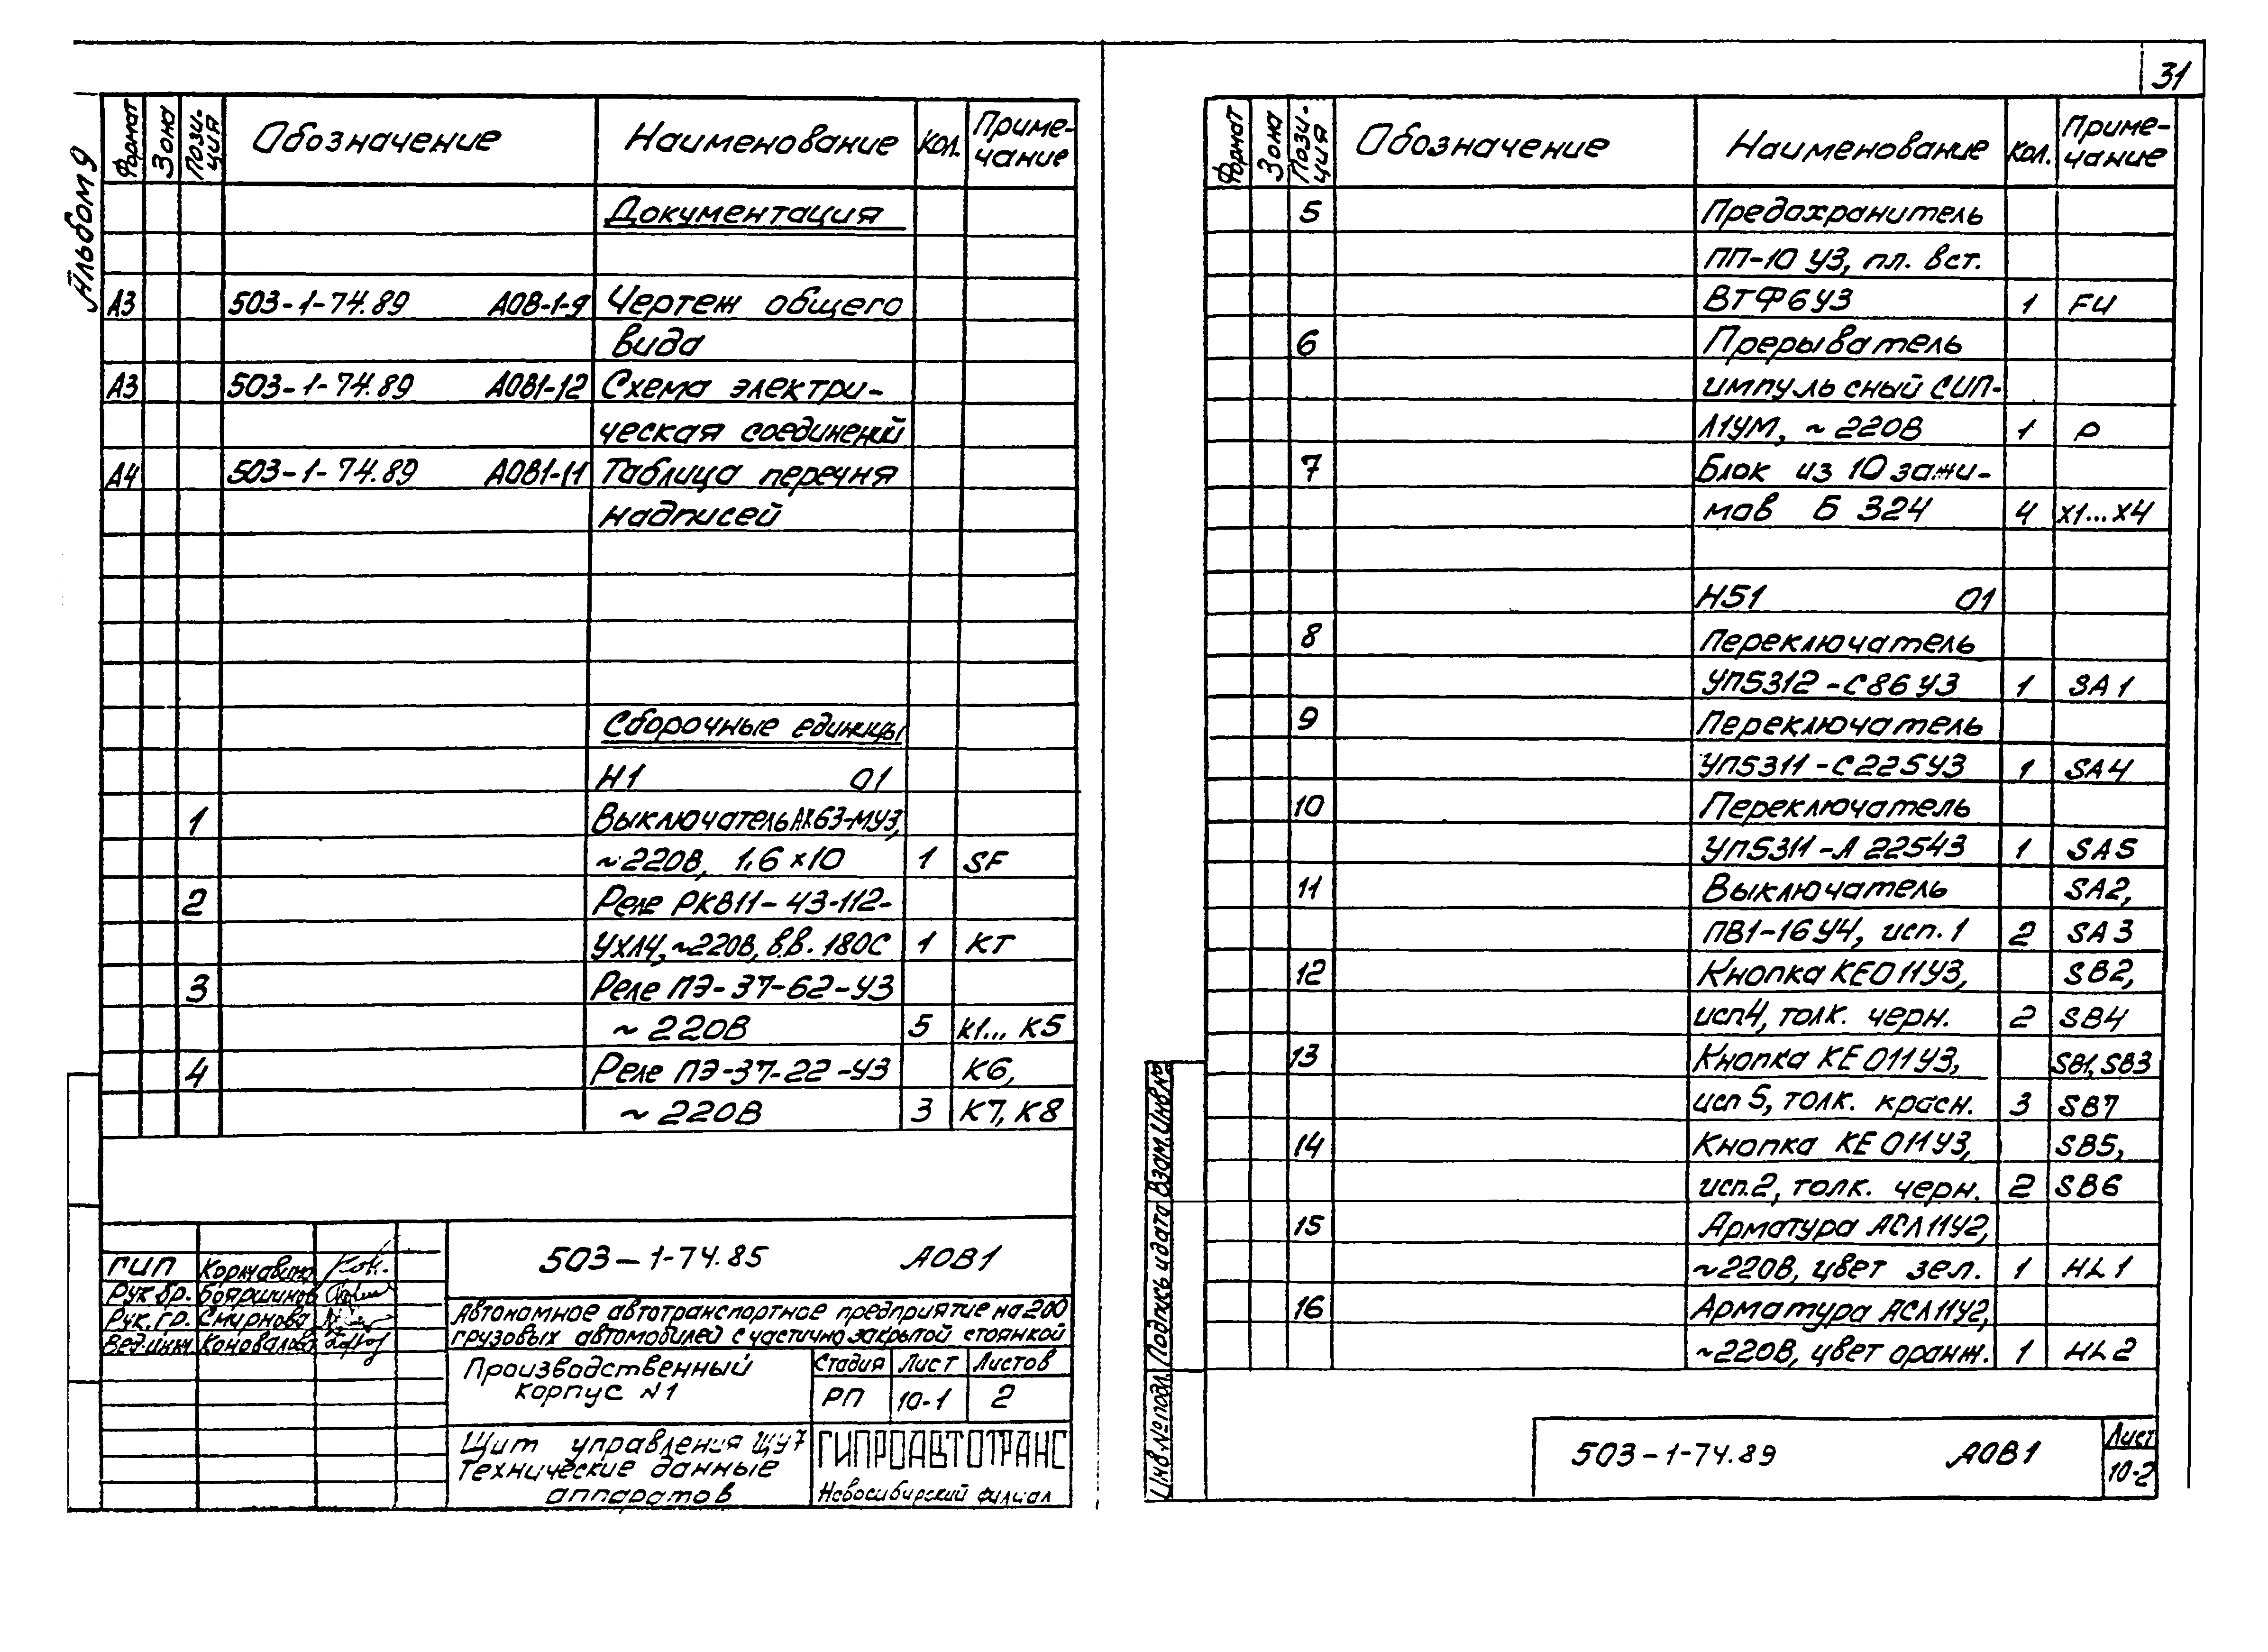 31
Альбом 9
Формат Зона Пози-ция Обозначение Наименование Кол. Приме-чание
Документация
А3 503-1-74.89 АОВ-1-9 Чертеж общего
вида
А3 503-1-74.89 АОВ1-12 Схема электри-
ческая соединений
А4 503-1-74.89 АОВ1-11 Таблица перечня
надписей
Сборочные единицы
Н1 01
1 Выключатель АК63-МУ3,
~220В, 1,6×10 1 SF
2 Реле РКВ11-43-112-
УХЛ4, ~220В, в.в. 180С 1 КТ
3 Реле ПЭ-37-62-У3
~220В 5 К1... К5
4 Реле ПЭ-37-22-У3 К6,
~220В 3 К7, К8
503-1-74.85 АОВ1
ГИП Коржавина
Рук бр. Бояршинов
Рук. гр. Смирнова
Вед.инж Коновалова
Автономное автотранспортное предприятие на 200
грузовых автомобилей с частично закрытой стоянкой
Производственный
корпус N1
Стадия Лист Листов
РП 10-1 2
Щит управления ЩУ7
Технические данные
аппаратов
ГИПРОАВТОТРАНС
Новосибирский филиал
Формат Зона Пози-ция Обозначение Наименование Кол. Приме-чание
5 Предохранитель
ПП-10 У3, пл. вст.
ВТФ6У3 1 FU
6 Прерыватель
импульсный СИП-
Л1УМ, ~220В 1 Р
7 Блок из 10 зажи-
мов Б 324 4 Х1...Х4
Н51 01
8 Переключатель
УП5312-С86У3 1 SA1
9 Переключатель
УП5311-С225У3 1 SA4
10 Переключатель
УП5311-А225У3 1 SA5
11 Выключатель SA2,
ПВ1-16У4, исп.1 2 SA3
12 Кнопка КЕ011У3, SB2,
исп4, толк. черн. 2 SB4
13 Кнопка КЕ011У3, SB1, SB3
исп 5, толк. красн. 3 SB7
14 Кнопка КЕ 011У3, SB5,
исп.2, толк. черн. 2 SB6
15 Арматура АСЛ11У2,
~220В, цвет зел. 1 HL1
16 Арматура АСЛ11У2,
~220В, цвет оранж. 1 HL2
Инв.№ подл. Подпись и дата Взам.Инв.№
503-1-74.89 АОВ1
Лист
10-2